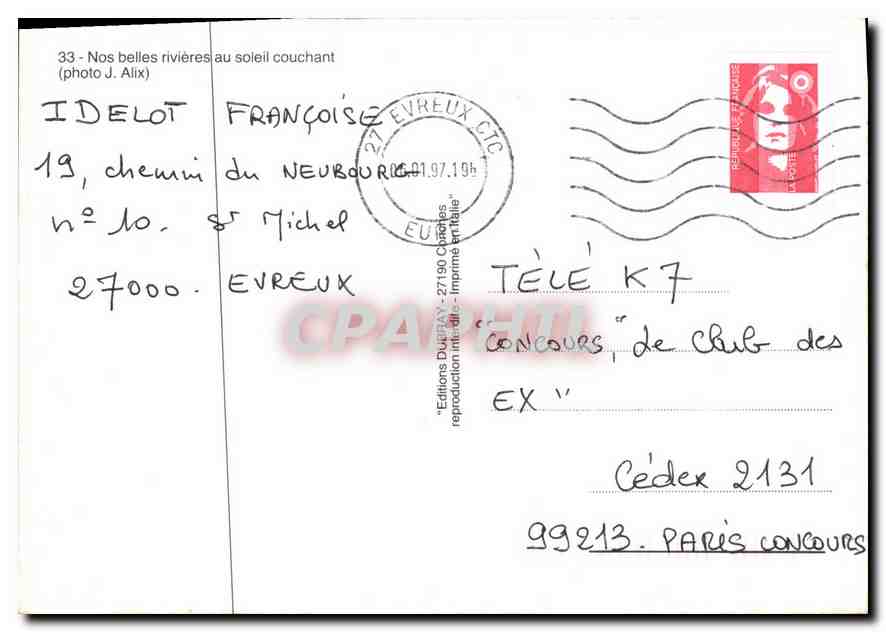 33 - Nos belles rivières au soleil couchant
(photo J. Alix)
IDELOT FRANÇOISE
19, chemin du NEUBOURG
n° 10. St Michel
27000. EVREUX
27 EVREUX CTC
06.01.97.19h
EURE
RÉPUBLIQUE FRANÇAISE
LA POSTE
"Editions DUBRAY - 27190 Conches
reproduction interdite - Imprimé en Italie"
CPAPHIL
TÈLÉ K7
"CONCOURS," Le Club des
EX"
Cédex 2131
99213. PARIS CONCOURS